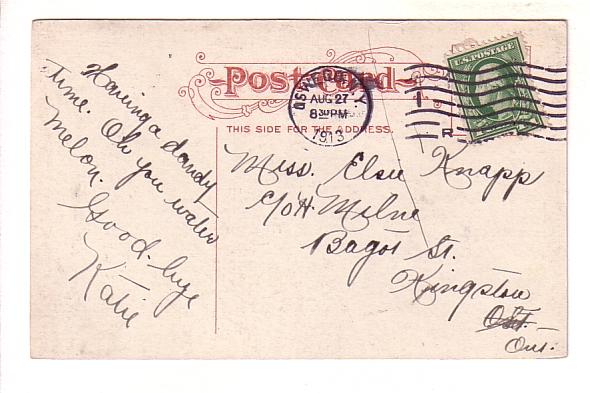 Post Card
THIS SIDE FOR THE ADDRESS.
OSWEGO, N.Y.
AUG 27
8 30 PM
1913
U.S. POSTAGE
R
Having a dandy
time. Oh you water
melon.
Good-bye
Katie
Miss. Elsie Knapp
C/o H. Milne
Bagot St.
Kingston
Ont.